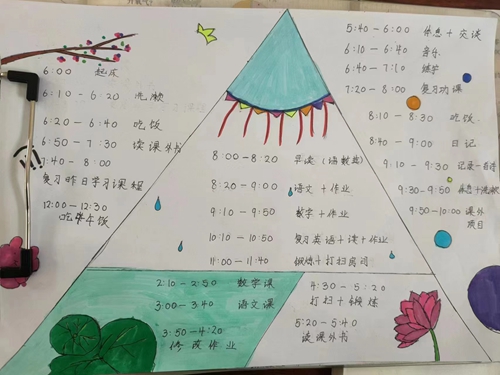 6:00 起床
6:10-6:20 洗漱
6:20-6:40 吃饭
6:50-7:30 读课外书
7:40-8:00
复习昨日学习课程
12:00-12:30
吃午饭
8:00-8:20 早读（语数英）
8:20-9:00 语文+作业
9:10-9:50 数学+作业
10:10-10:50 复习英语+读+作业
11:00-11:40 锻炼+打扫房间
2:10-2:50 数学课
3:00-3:40 语文课
3:50-4:20
修改作业
4:30-5:20
打扫+锻炼
5:20-5:40
读课外书
5:40-6:00 休息+交谈
6:10-6:40 音乐
6:40-7:10
7:20-8:00 复习功课
8:10-8:30 吃饭
8:40-9:00 日记
9:10-9:30 记录一首诗
9:30-9:50 休息+洗漱
9:50-10:00 课外
项目